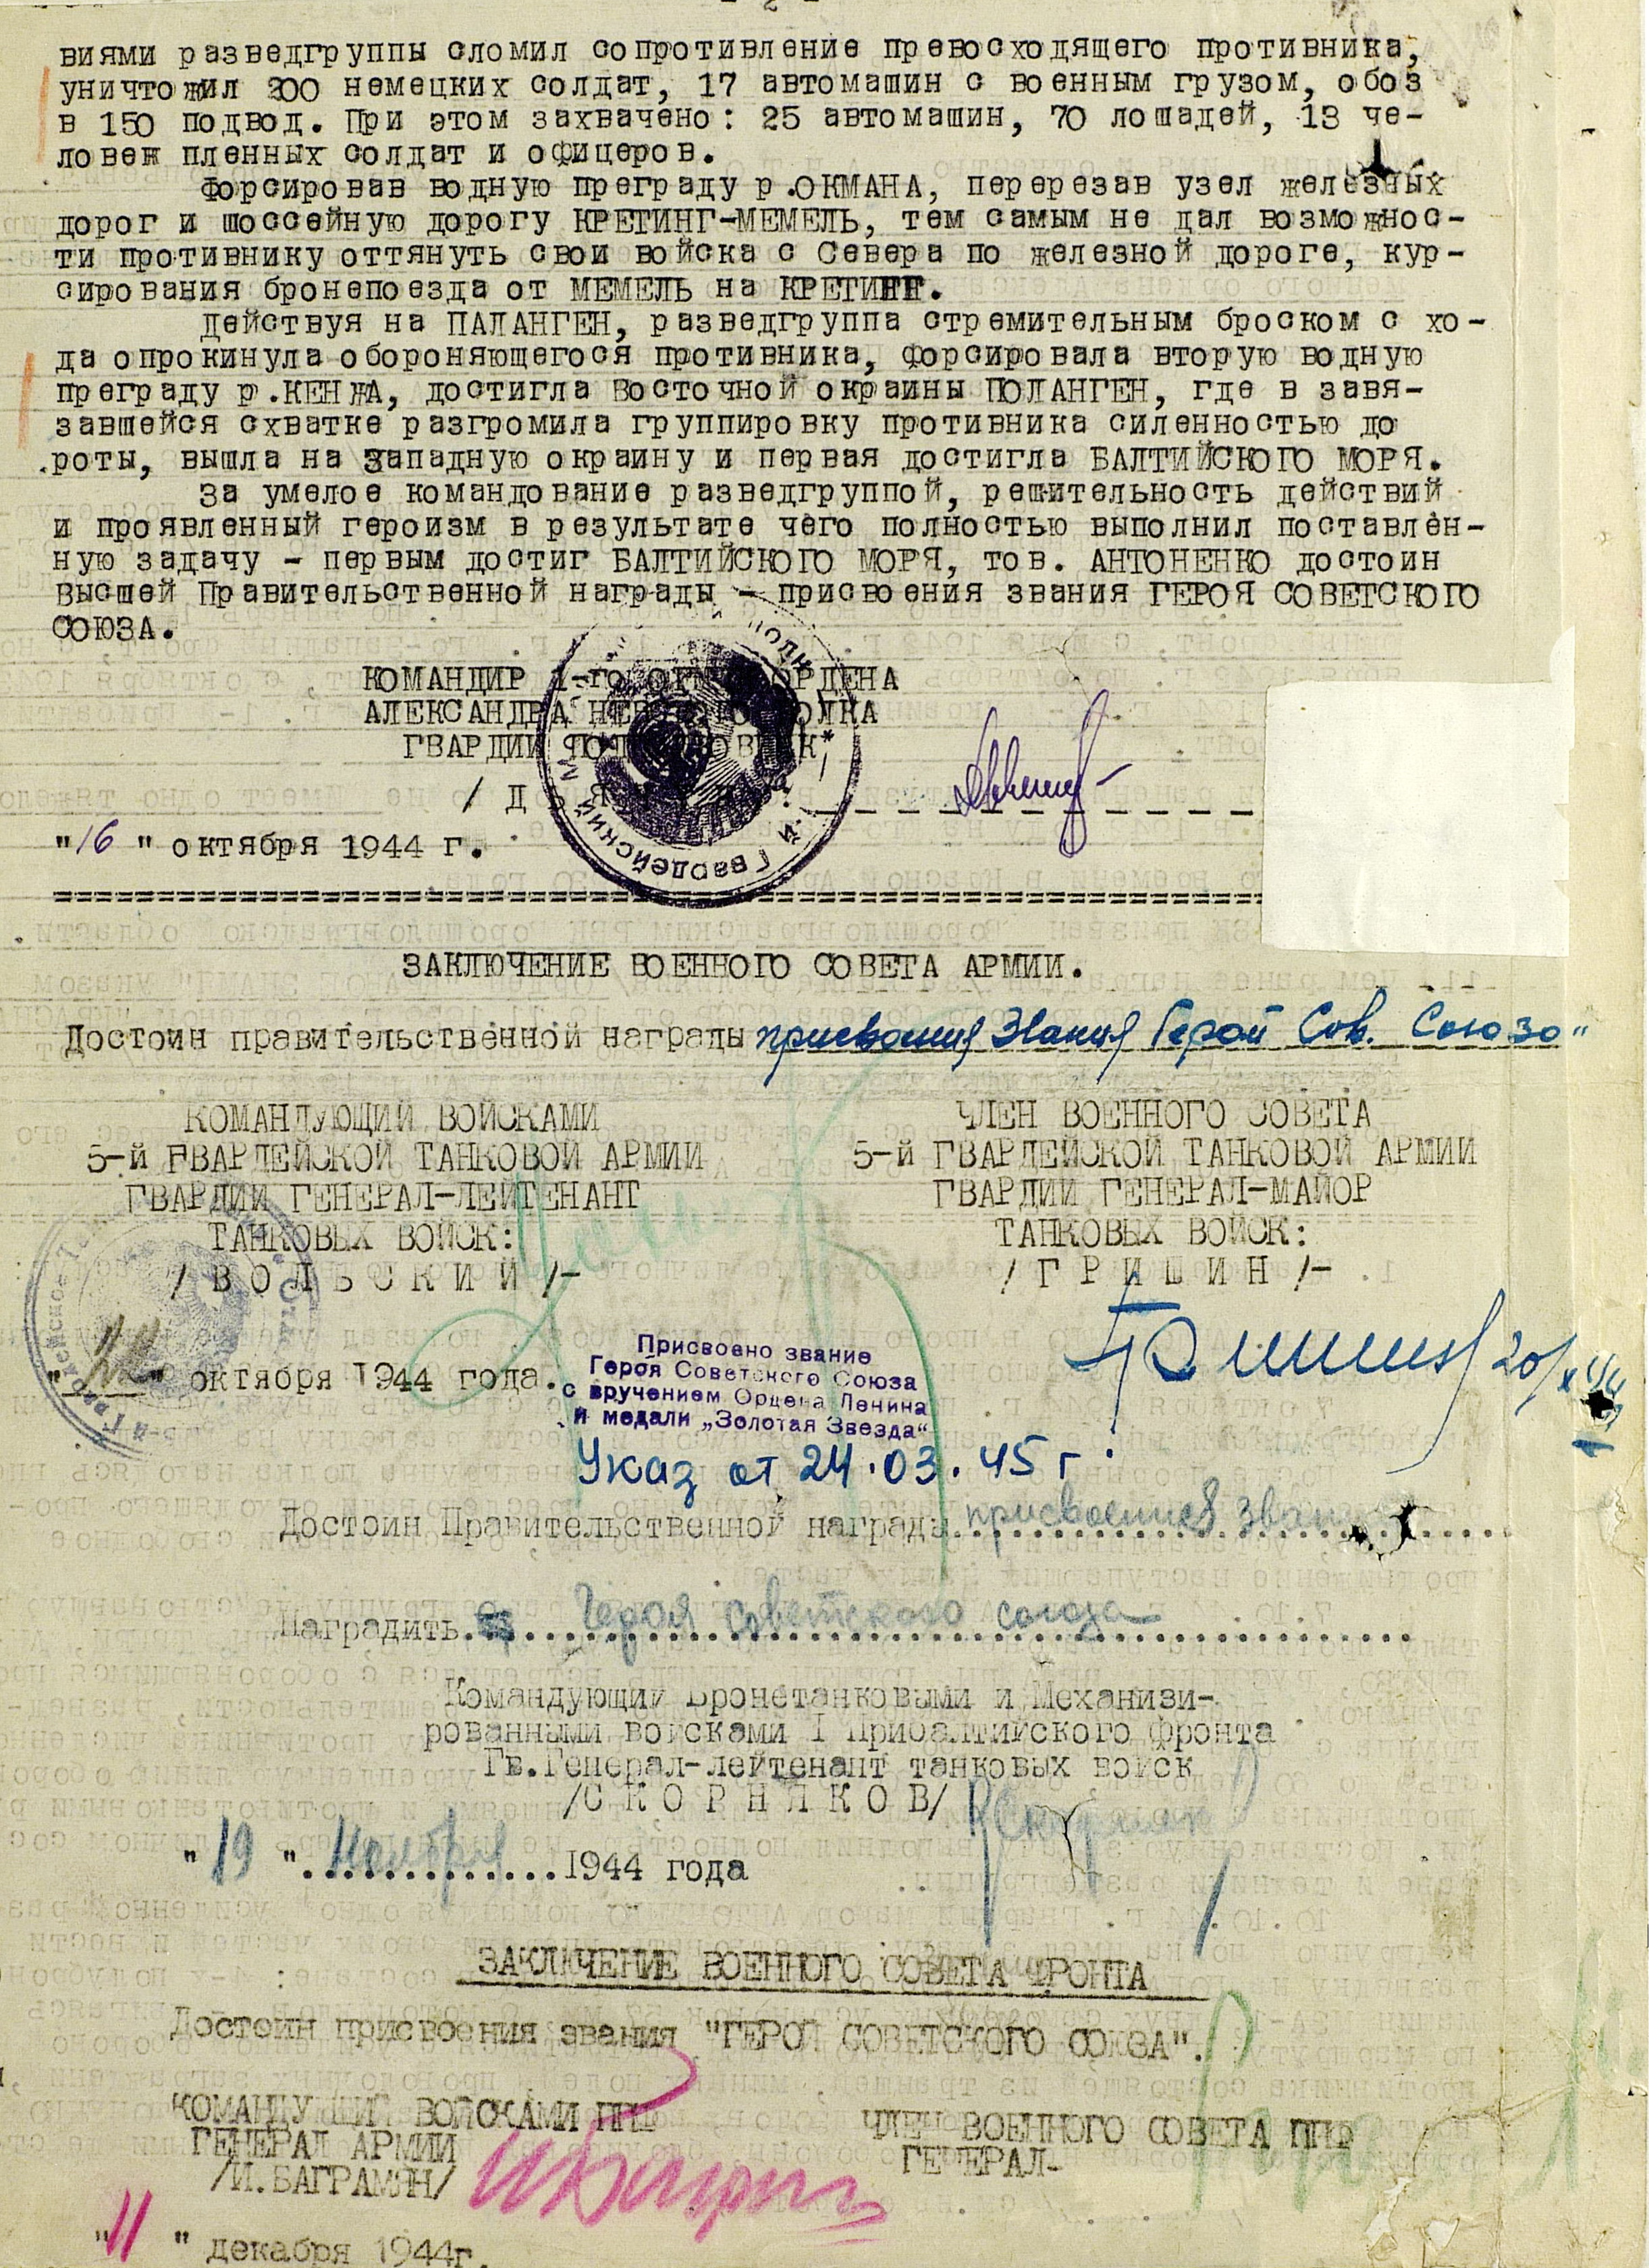 - 2 -
виями разведгруппы сломил сопротивление превосходящего противника,
уничтожил 200 немецких солдат, 17 автомашин с военным грузом, обоз
в 150 подвод. При этом захвачено: 25 автомашин, 70 лошадей, 13 че-
ловек пленных солдат и офицеров.
Форсировав водную преграду р.ОКМАНА, перерезав узел железных
дорог и шоссейную дорогу КРЕТИНГ-МЕМЕЛЬ, тем самым не дал возможнос-
ти противнику оттянуть свои войска с Севера по железной дороге, кур-
сирования бронепоезда от МЕМЕЛЬ на КРЕТИНГ.
Действуя на ПАЛАНГЕН, разведгруппа стремительным броском с хо-
да опрокинула обороняющегося противника, форсировала вторую водную
преграду р.КЕНЖА, достигла Восточной окраины ПОЛАНГЕН, где в завя-
завшейся схватке разгромила группировку противника силенностью до
роты, вышла на западную окраину и первая достигла БАЛТИЙСКОГО МОРЯ.
За умелое командование разведгруппой, решительность действий
и проявленный героизм в результате чего полностью выполнил поставлен-
ную задачу - первым достиг БАЛТИЙСКОГО МОРЯ, тов. АНТОНЕНКО достоин
Высшей Правительственной награды - присвоения звания ГЕРОЯ СОВЕТСКОГО
СОЮЗА.
КОМАНДИР 1-го ОРДЕНА
АЛЕКСАНДРА НЕВСКОГО ПОЛКА
ГВАРДИИ ПОЛКОВНИК
"16" октября 1944 г.
ЗАКЛЮЧЕНИЕ ВОЕННОГО СОВЕТА АРМИИ.
Достоин правительственной награды присвоения Звания Герой Сов. Союза"
КОМАНДУЮЩИЙ ВОЙСКАМИ
5-й ГВАРДЕЙСКОЙ ТАНКОВОЙ АРМИИ
ГВАРДИИ ГЕНЕРАЛ-ЛЕЙТЕНАНТ
ТАНКОВЫХ ВОЙСК:
/ В О Л Ь С К И Й /-
ЧЛЕН ВОЕННОГО СОВЕТА
5-й ГВАРДЕЙСКОЙ ТАНКОВОЙ АРМИИ
ГВАРДИИ ГЕНЕРАЛ-МАЙОР
ТАНКОВЫХ ВОЙСК:
/ Г Р И Ш И Н /-
октября 1944 года.
Присвоено звание
Героя Советского Союза
с вручением Ордена Ленина
и медали „Золотая Звезда“
Указ от 24.03.45 г.
Достоин Правительственной награды присвоения звания
Наградить Героя Советского союза
Командующий Бронетанковыми и Механизи-
рованными войсками I Прибалтийского фронта
Гв.Генерал-лейтенант танковых войск
/С К О Р Н Я К О В/
"19" Ноября 1944 года
ЗАКЛЮЧЕНИЕ ВОЕННОГО СОВЕТА ФРОНТА
Достоин присвоения звания "ГЕРОЙ СОВЕТСКОГО СОЮЗА".
КОМАНДУЮЩИЙ ВОЙСКАМИ ППФ
ГЕНЕРАЛ АРМИИ
/И.БАГРАМЯН/
ЧЛЕН ВОЕННОГО СОВЕТА ППФ
ГЕНЕРАЛ-
"11" декабря 1944г.